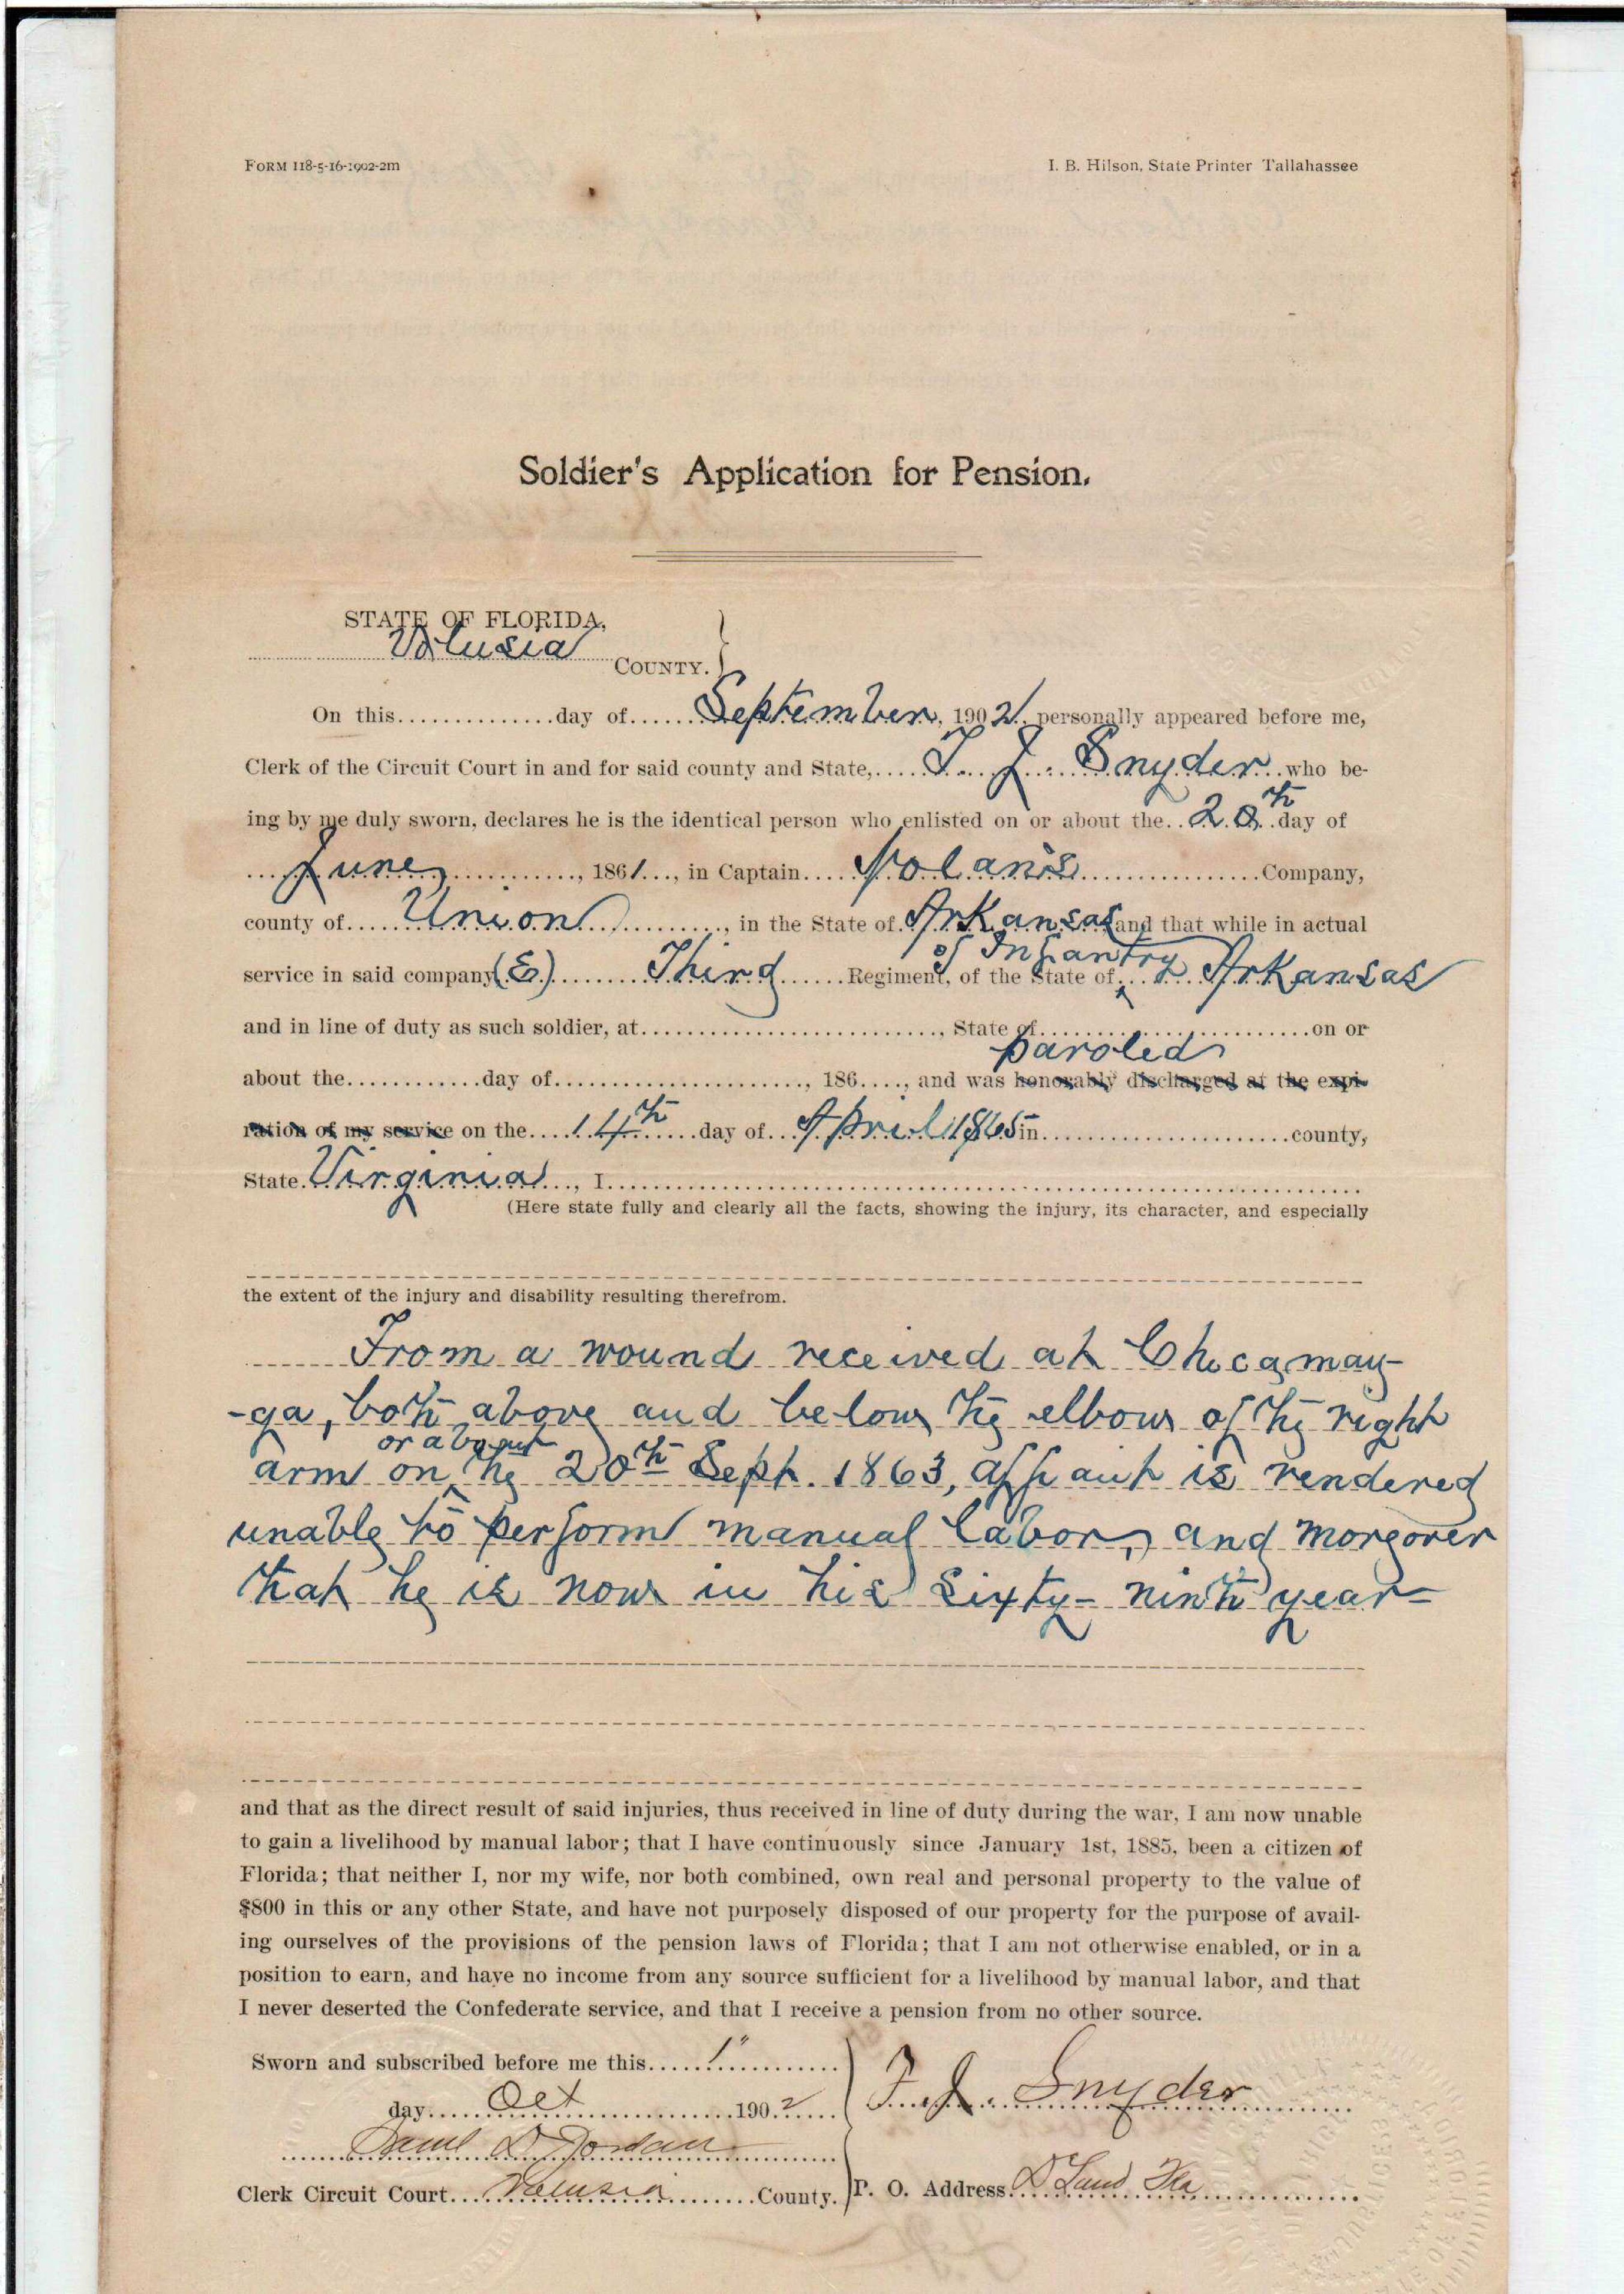 FORM 118-5-16-1902-2m
I. B. Hilson, State Printer Tallahassee
Soldier's Application for Pension.
STATE OF FLORIDA,
Volusia COUNTY.
On this..............day of......September, 1902. personally appeared before me,
Clerk of the Circuit Court in and for said county and State,.....T. J. Snyder...who be-
ing by me duly sworn, declares he is the identical person who enlisted on or about the..20th..day of
....June............, 1861..., in Captain.....Nolan's................Company,
county of.....Union............, in the State of.Arkansas and that while in actual
of Infantry
service in said company (E).........Third......Regiment, of the State of.......Arkansas
and in line of duty as such soldier, at..........................., State of.........................on or
paroled
about the............day of......................, 186...., and was honorably discharged at the expi-
ration of my service on the....14th......day of...April 1865 in......................county,
State.Virginia..., I...........................................................................
(Here state fully and clearly all the facts, showing the injury, its character, and especially
the extent of the injury and disability resulting therefrom.
From a wound received at Chicamau-
-ga, both above and below the elbow of the right
or about
arm on the 20th Sept. 1863, affiant is rendered
unable to perform manual labor, and moreover
that he is now in his sixty-ninth year-
and that as the direct result of said injuries, thus received in line of duty during the war, I am now unable
to gain a livelihood by manual labor; that I have continuously since January 1st, 1885, been a citizen of
Florida; that neither I, nor my wife, nor both combined, own real and personal property to the value of
$800 in this or any other State, and have not purposely disposed of our property for the purpose of avail-
ing ourselves of the provisions of the pension laws of Florida; that I am not otherwise enabled, or in a
position to earn, and have no income from any source sufficient for a livelihood by manual labor, and that
I never deserted the Confederate service, and that I receive a pension from no other source.
Sworn and subscribed before me this.....1"...........
day.....Oct..................1902.....
T. J. Snyder
Saml D Jordan
Clerk Circuit Court....Volusia..........County.
P. O. Address.DLand Fla